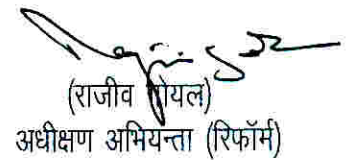 (राजीव गोयल)
अधीक्षण अभियन्ता (रिफॉर्म)